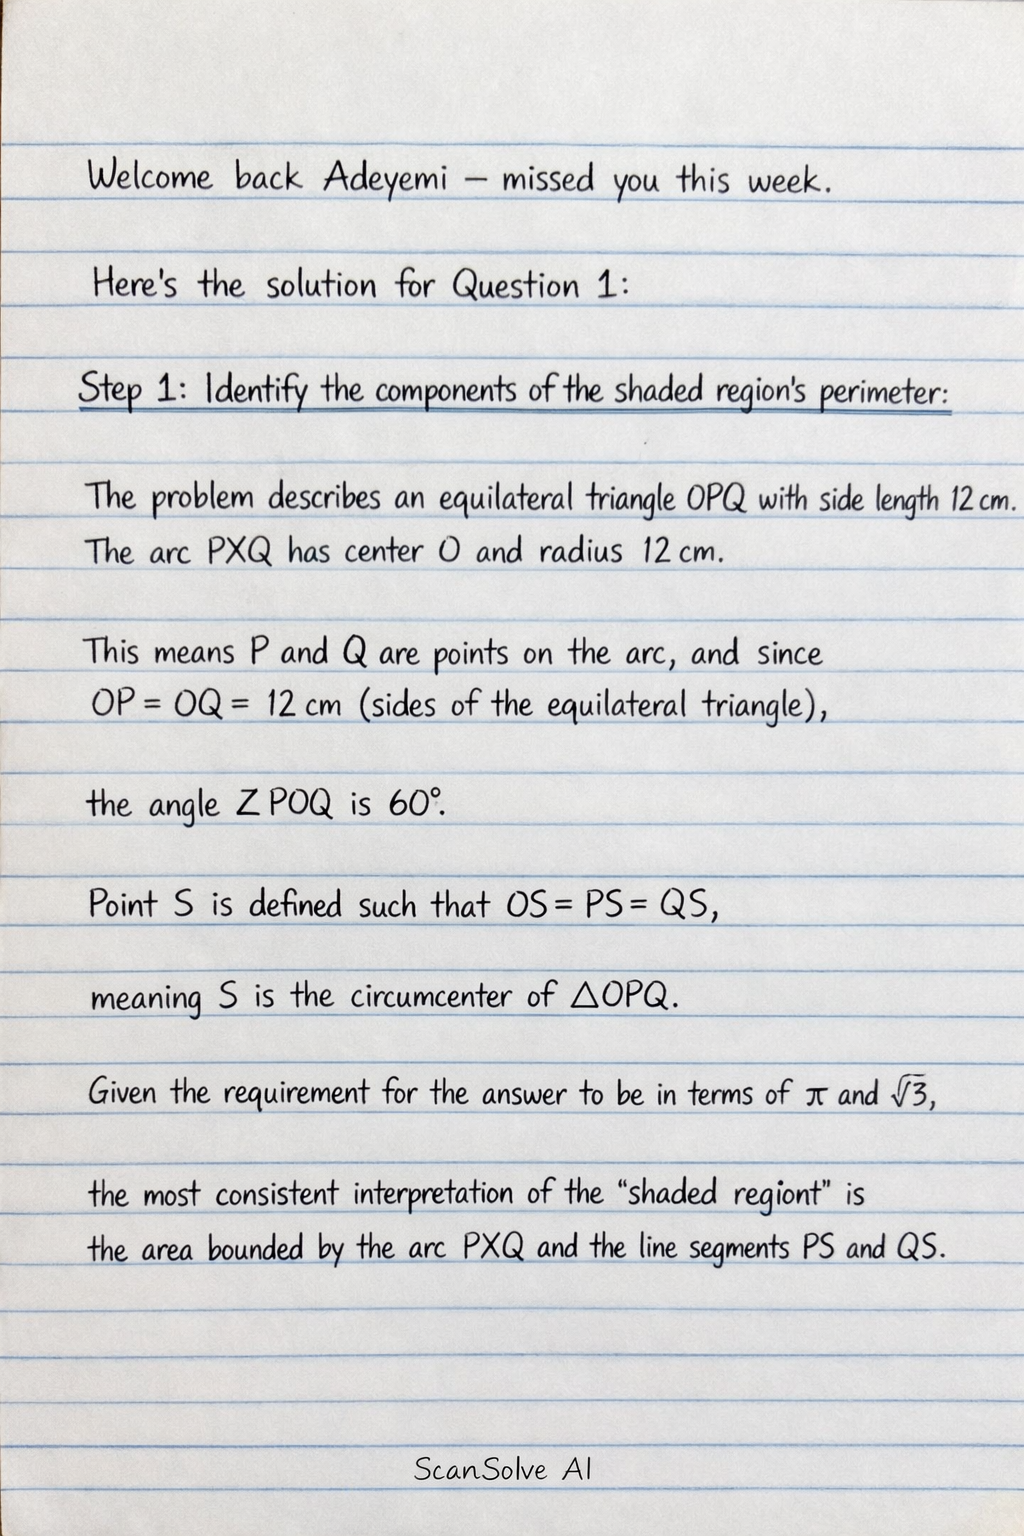 Welcome back Adeyemi – missed you this week.
Here's the solution for Question 1:
Step 1: Identify the components of the shaded region's perimeter:
The problem describes an equilateral triangle OPQ with side length 12 cm.
The arc PXQ has center O and radius 12 cm.
This means P and Q are points on the arc, and since
OP = OQ = 12 cm (sides of the equilateral triangle),
the angle Z POQ is 60°.
Point S is defined such that OS = PS = QS,
meaning S is the circumcenter of △OPQ.
Given the requirement for the answer to be in terms of π and √3,
the most consistent interpretation of the “shaded regiont” is
the area bounded by the arc PXQ and the line segments PS and QS.
ScanSolve AI